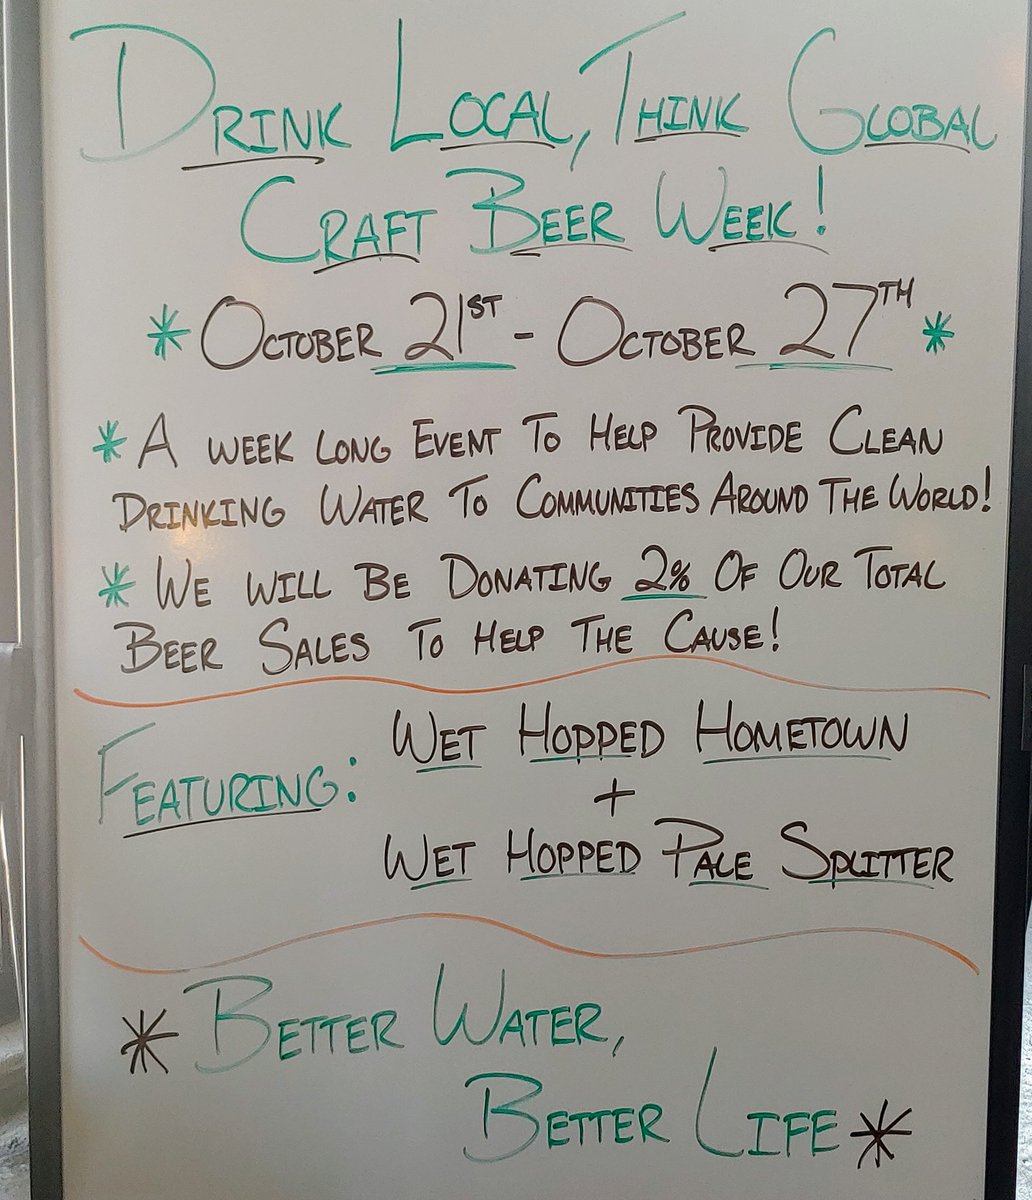 DRINK LOCAL, THINK GLOBAL
CRAFT BEER WEEK!
* OCTOBER 21ST - OCTOBER 27TH *
* A WEEK LONG EVENT TO HELP PROVIDE CLEAN
DRINKING WATER TO COMMUNITIES AROUND THE WORLD!
* WE WILL BE DONATING 2% OF OUR TOTAL
BEER SALES TO HELP THE CAUSE!
FEATURING: WET HOPPED HOMETOWN
+
WET HOPPED PALE SPLITTER
* BETTER WATER,
BETTER LIFE *